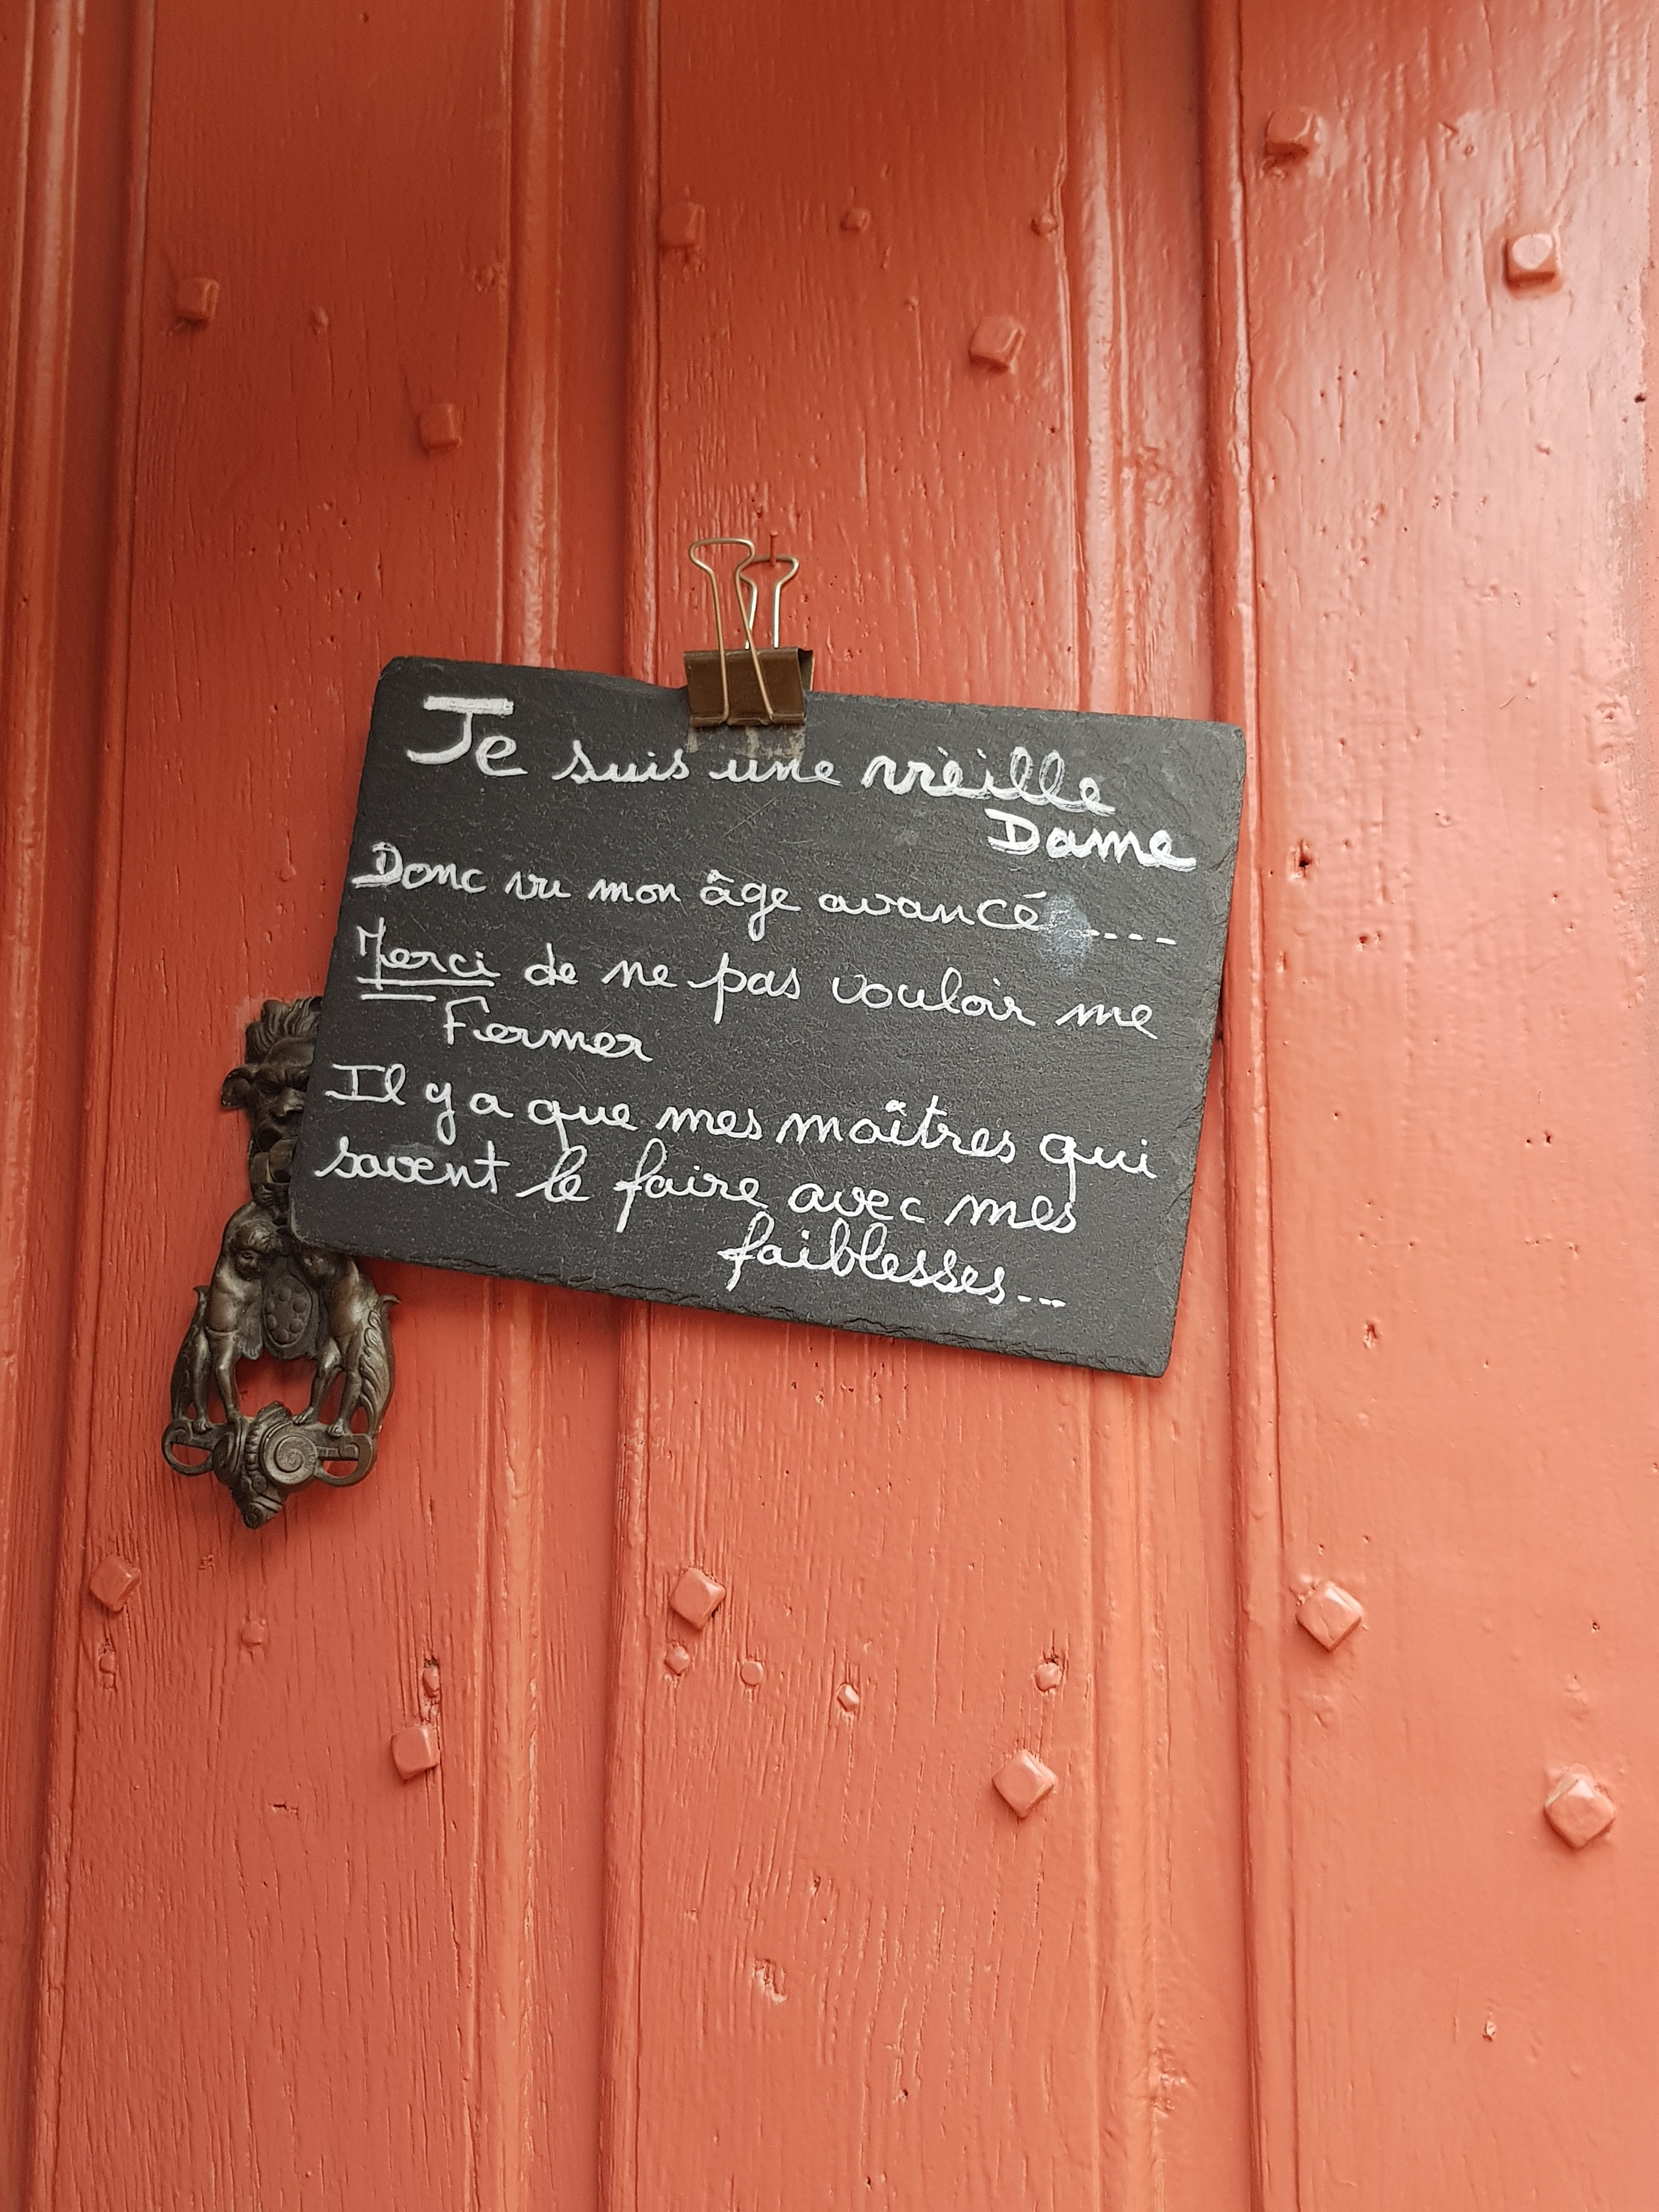 Je suis une vieille
Dame
Donc vu mon âge avancé.....
Merci de ne pas vouloir me
Fermer
Il y a que mes maîtres qui
savent le faire avec mes
faiblesses...